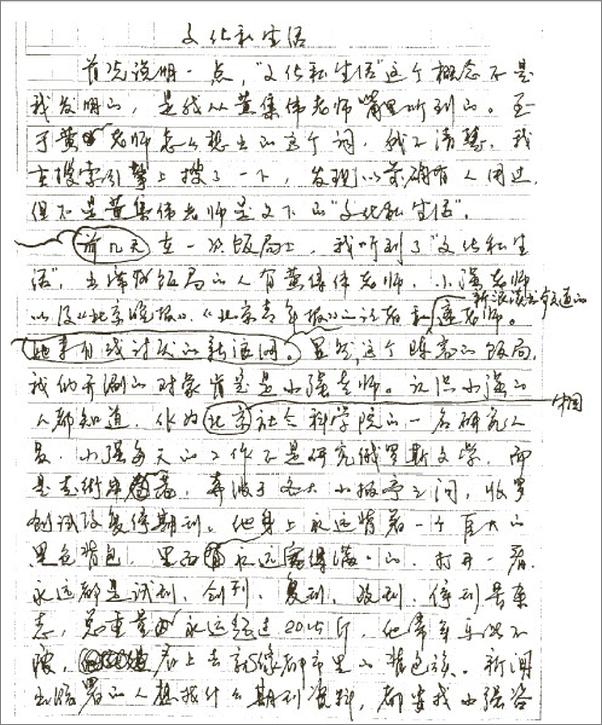 文化私生活
首先说明一点，“文化私生活”这个概念不是
我发明的，是我从黄集伟老师嘴里听到的。至
于黄老师怎么想出的这个词，我不清楚，我
在搜索引擎上搜了一下，发现以前确有人用过，
但不是黄集伟老师定义下的“文化私生活”。
前几天在一次饭局上，我听到了“文化私生
活”，出席饭局的人有黄集伟老师、小强老师
以及《北京晚报》、《北京青年报》的记者和老师。
新浪读书频道的
他来自我讨厌的新浪网。显然，这个阵容的饭局，
我们开涮的对象肯定是小强老师。认识小强的
人都知道，作为北京社会科学院的一名研究人
中国
员，小强每天的工作不是研究俄罗斯文学，而
是走街串巷，奔波于各大小报亭之间，收罗
创试改复停期刊。他身上永远背着一个巨大的
黑色背包，里面永远塞得满满的，打开一看，
永远都是试刊、创刊、复刊、改刊、停刊号杂
志，总重量永远超过20公斤，他常年乐此不
疲，看上去就像都市里的背包族。新闻
出版署的人想找什么期刊资料，都要找小强咨